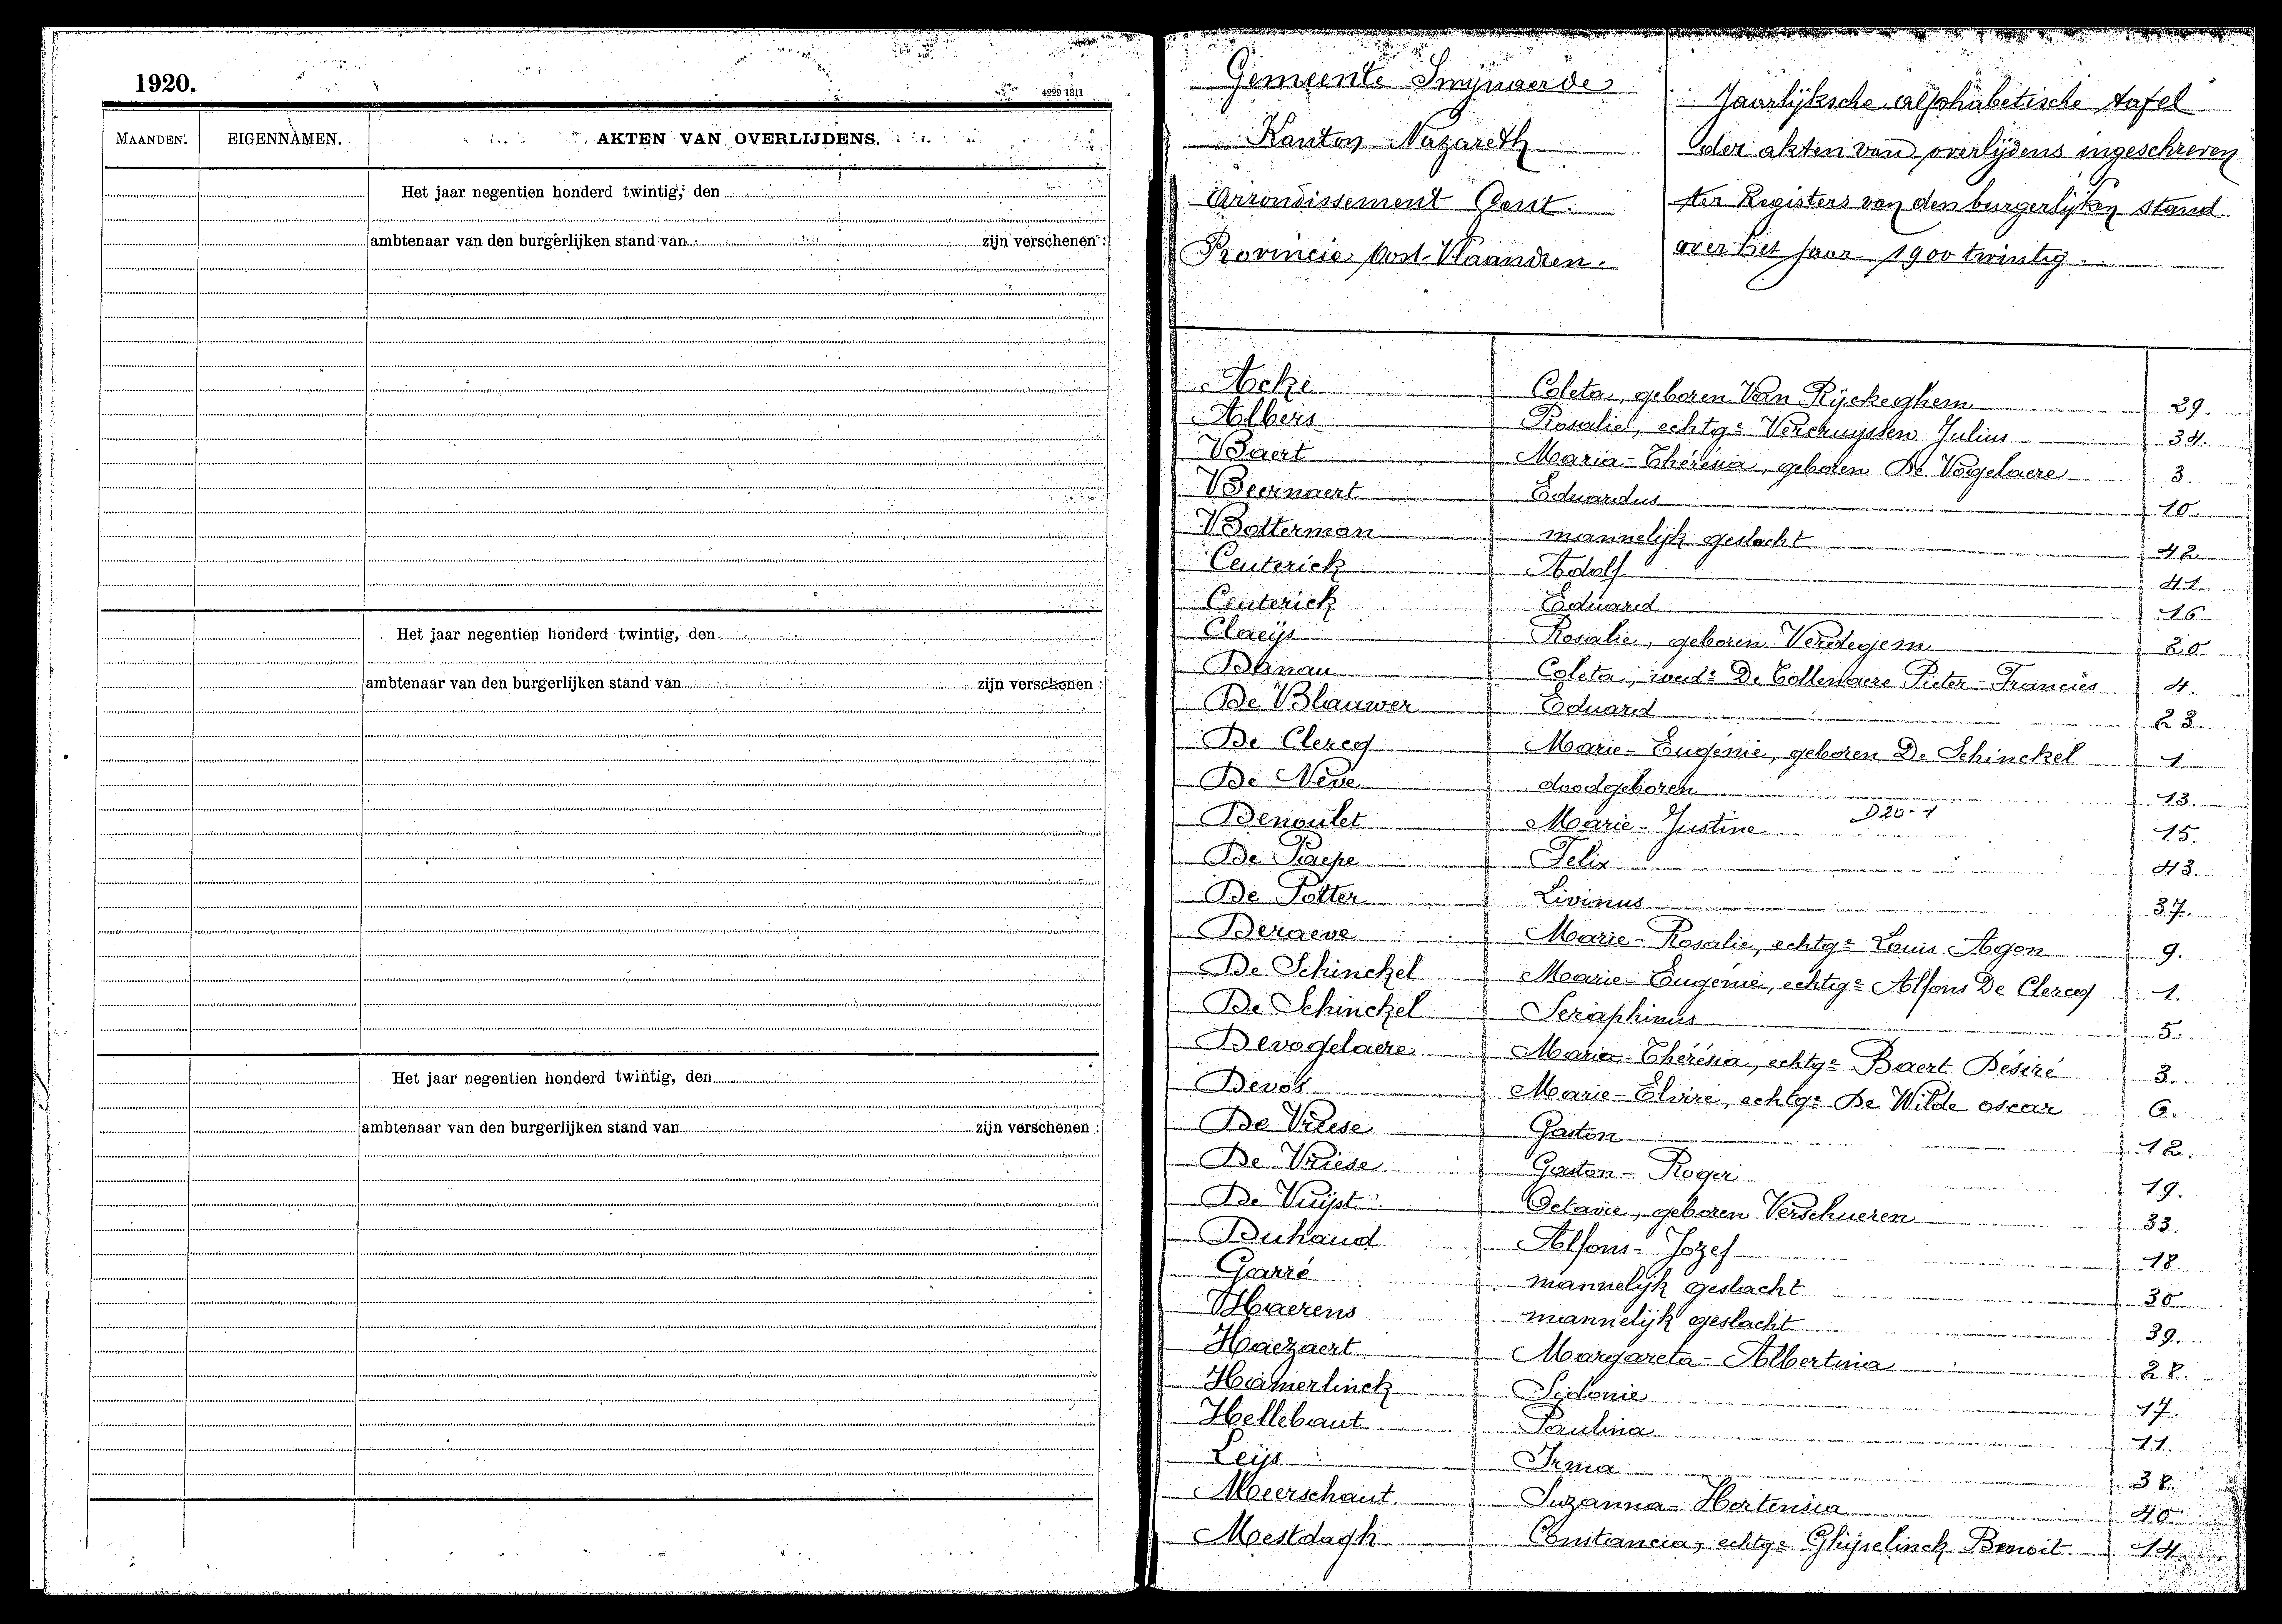 1920.
4229 1311
MAANDEN. EIGENNAMEN. AKTEN VAN OVERLIJDENS.
Het jaar negentien honderd twintig, den
ambtenaar van den burgerlijken stand van zijn verschenen :
Het jaar negentien honderd twintig, den
ambtenaar van den burgerlijken stand van zijn verschenen :
Het jaar negentien honderd twintig, den
ambtenaar van den burgerlijken stand van zijn verschenen :
Gemeente Swijnaerde
Kanton Nazareth
Arrondissement Gent.
Provincie Oost-Vlaandren.
Jaarlijksche alphabetische tafel
der akten van overlijdens ingeschreven
ter Registers van den burgerlijken stand
over het jaar 1900 twintig.
Acke Coleta, geboren Van Rijckeghem 29.
Albers Rosalie, echtge Vercruyssen Julius 34.
Baert Maria-Thérésia, geboren De Vogelaere 3.
Beernaert Eduardus 10.
Botterman mannelijk geslacht 42
Ceuterick Adolf 41.
Ceuterick Eduard 16
Claeijs Rosalie, geboren Verdegem 20
Danau Coleta, wede De Collenaere Pieter-Francies 4.
De Blauwer Eduard 23.
De Clercq Marie-Eugénie, geboren De Schinckel 1
De Neve doodgeboren 13.
Denoulet Marie-Justine D20-1 15.
De Paepe Felix 43.
De Potter Livinus 37.
Deraeve Marie-Rosalie, echtge Louis Agon 9.
De Schinckel Marie-Eugénie, echtge Alfons De Clercq 1.
De Schinckel Seraphinus 5.
Devogelaere Maria-Thérésia, echtge Baert Désiré 3.
Devos Marie-Elvire, echtge De Wilde oscar 6.
De Vriese Gaston 12.
De Vriese Gaston-Roger 19.
De Vuijst Octavie, geboren Verschueren 33.
Duhaud Alfons-Jozef 18.
Garré mannelijk geslacht 30
Haerens mannelijk geslacht 39.
Haezaert Margareta-Albertina 28.
Hamerlinck Sidonie 17.
Hellebaut Paulina 11.
Leijs Irma 38.
Meerschaut Suzanna-Hortensia 40
Mestdagh Constancia, echtge Ghijselinck Benoit 14